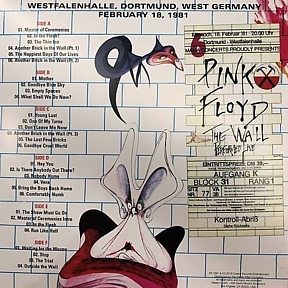 WESTFALENHALLE, DORTMUND, WEST GERMANY
FEBRUARY 18, 1981
SIDE A
01. Master of Ceremonies
02. In the Flesh?
03. The Thin Ice
04. Another Brick in the Wall (Pt. 1)
05. The Happiest Days Of Our Lives
06. Another Brick in the Wall (Pt. 2)
SIDE B
01. Mother
02. Goodbye Blue Sky
03. Empty Spaces
04. What Shall We Do Now?
SIDE C
01. Young Lust
02. One Of My Turns
03. Don't Leave Me Now
04. Another Brick in the Wall (Pt. 3)
05. The Last Few Bricks
06. Goodbye Cruel World
SIDE D
01. Hey You
02. Is There Anybody Out There?
03. Nobody Home
04. Vera
05. Bring the Boys Back Home
06. Comfortably Numb
SIDE E
01. The Show Must Go On
02. Master of Ceremonies Intro
03. In the Flesh
04. Run Like Hell
SIDE F
01. Waiting for the Worms
02. Stop
03. The Trial
04. Outside the Wall
Mittwoch, 18. Februar '81 · 20.00 Uhr
Dortmund · Westfalenhalle
CONCERTS PROUDLY PRESENTS
PINK
FLOYD
THE WALL
PERFORMED LIVE
EINTRITTSPREIS DM 39,–
AUFGANG K
BLOCK 31 RANG 1
NR. 77
Kontroll-Abriß